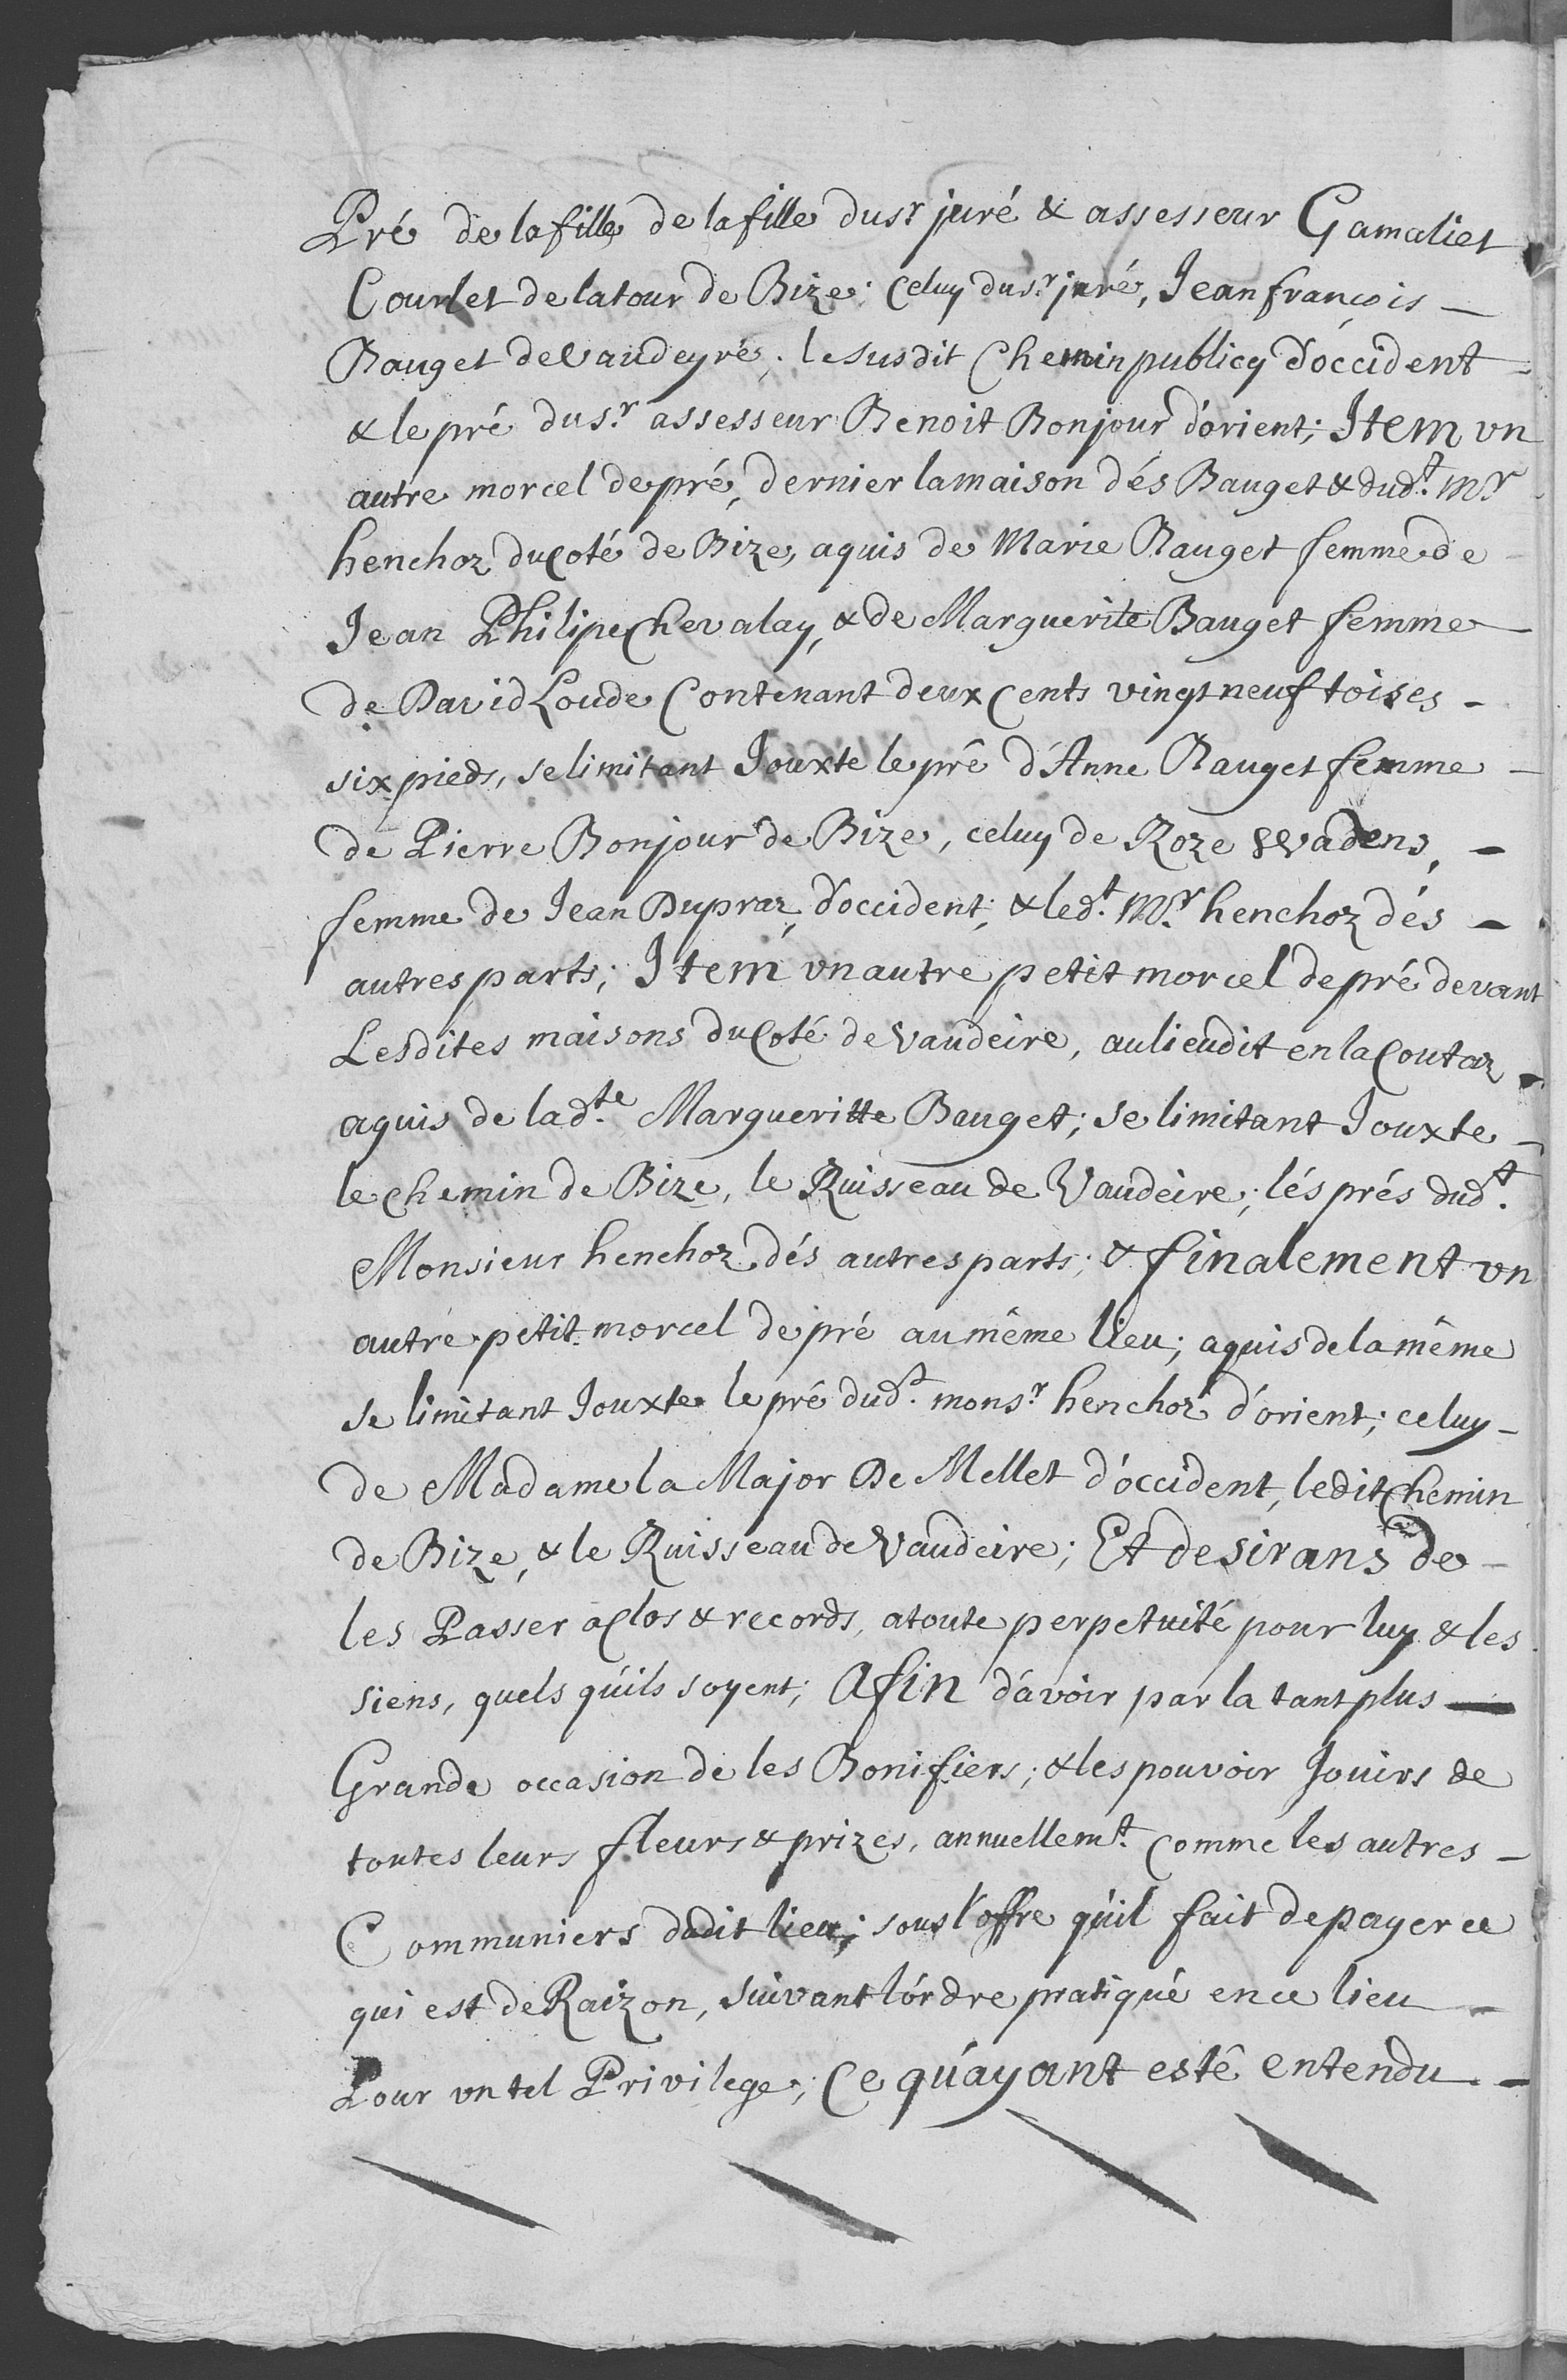 Pré de la fille de la fille du sr juré & assesseur Gamaliel
Courlet de la tour de Bize; Celuy du sr. juré, Jean françois —
Bauget de Vaudeyre; le susdit Chemin publicq d'occident
& le pré du sr. assesseur Benoit Bonjour d'orient; Item vn
autre morcel de pré, dernier la maison dés Bauget & dudt. Mr
henchoz du Coté de Bize, aquis de Marie Bauget femme de
Jean Philipe Chevalay, & de Marguerite Bauget femme —
de David Loude Contenant deux Cents vingt neuf toises —
six pieds, se limitant Jouxte le pré d'Anne Bauget femme —
de Pierre Bonjour de Bize, celuy de Roze Wadens, —
femme de Jean Dupraz, d'occident; & ledt. Mr. henchoz dés —
autres parts; Item vn autre petit morcel de pré devant
Lesdites maisons du Coté de Vaudeire, au lieu dit en la Coutaz —
aquis de ladte. Margueritte Bauget; se limitant Jouxte —
le Chemin de Bize, le Ruisseau de Vaudeire; lés prés dudt.
Monsieur henchoz dés autres parts; & finalement vn
autre petit morcel de pré au même lieu; aquis de la même
se limitant Jouxte le pré dudt. monsr. henchoz d'orient; celuy —
de Madame la Major De Mellet d'occident, ledit Chemin
de Bize, & le Ruisseau de Vaudeire; Et desirans de —
les Passer à Clos & records, a toute perpetuité pour luy & les
siens, quels qu'ils soyent; Afin d'avoir par la tant plus —
Grande occasion de les Bonifiers; & les pouvoir Jouirs de
toutes leurs fleurs & prizes, annuellemt. Comme les autres —
Communiers dudit lieu; sous l'offre qu'il fait de payer ce
qui est de Raizon, suivant l'ordre pratiqué en ce lieu —
Pour vn tel Privilege; Ce qu'ayant esté entendu —